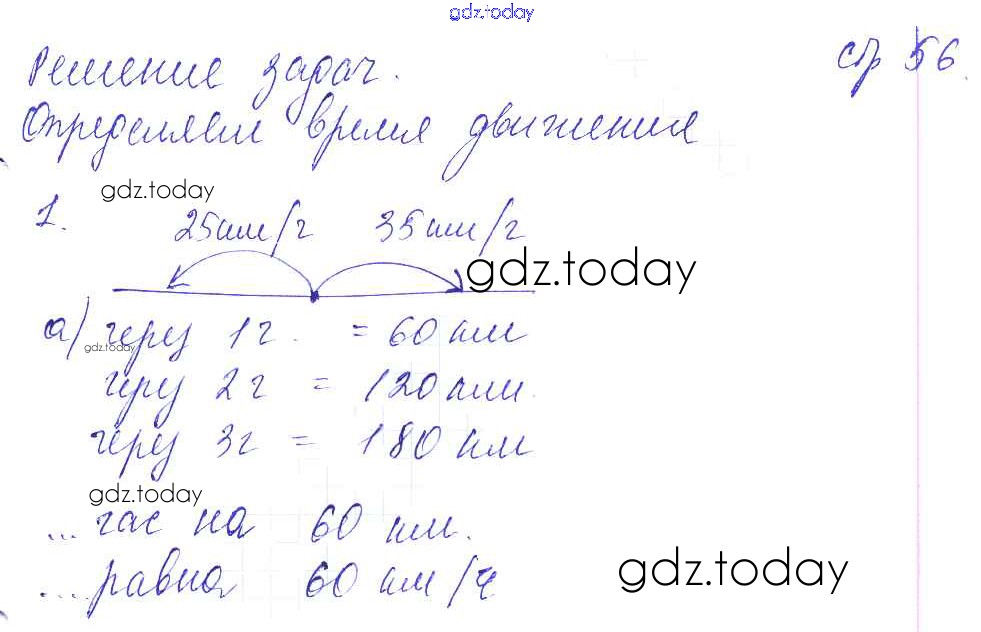 gdz.today
Решение задач. стр 56.
Определяем время движения
gdz.today
1. 25 км/ч 35 км/ч
gdz.today
а) через 1ч. = 60 км
gdz.today
через 2ч = 120 км.
через 3ч = 180 км
gdz.today
... час на 60 км.
gdz.today
.... равна 60 км/ч